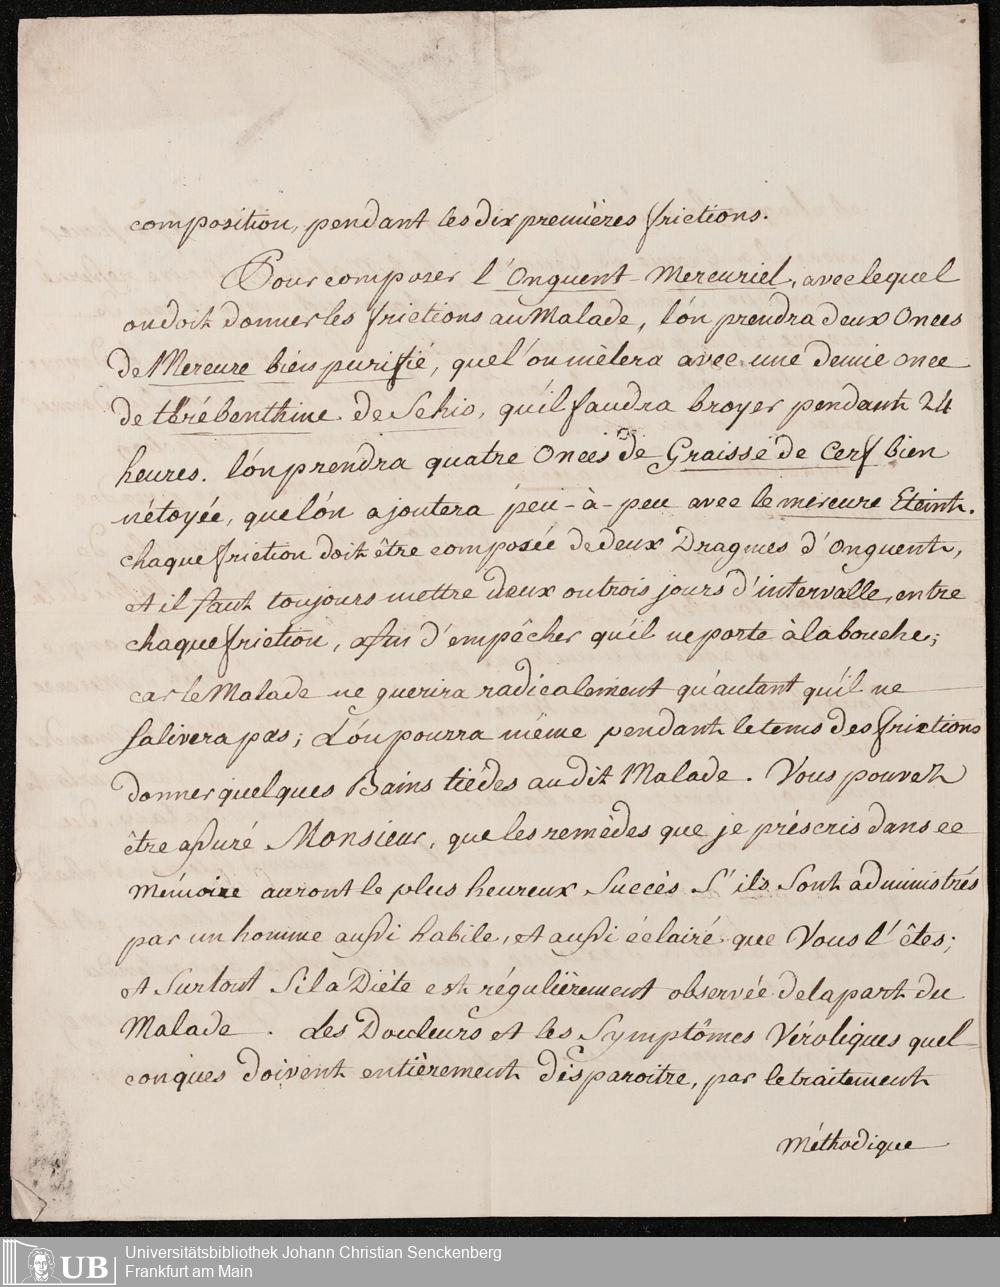 composition, pendant les dix premières frictions.
Pour composer l'Onguent-Mercuriel, avec lequel
on doit donner les frictions au Malade, l'ón prendra deux Onces
de Mercure bien purifié, que l'on mèlera avec une demie once
de thérébenthine de Schio, qu'il faudra broyer pendant 24
heures. l'ón prendra quatre Onces de Graisse de Cerf bien
nétoyée, que l'ón ajoutera peu-à-peu avec le mercure Eteint.
chaque friction doit être composée de deux Dragmes d'Onguent,
et il faut toujours mettre deux ou trois jours d'intervalle, entre
chaque friction, afin d'empêcher qu'il ne porte à la bouche;
car le Malade ne guerira radicalement qu'autant qu'il ne
salivera pas; L'ón pourra méme pendant le tems des frictions
donner quelques Bains tiédes au dit Malade. Vous pouvez
être assuré Monsieur, que les remèdes que je préscris dans ce
Mémoire auront le plus heureux Succès S'ils Sont administrés
par un homme aussi habile, et aussi éclairé que Vous l'êtes;
et Surtout Si la Diéte est régulièrement observée de la part du
Malade. Les Douleurs et les Symptômes Véroliques quel-
conques doivent entièrement disparoitre, par le traitement
Méthodique
UB
Universitätsbibliothek Johann Christian Senckenberg
Frankfurt am Main